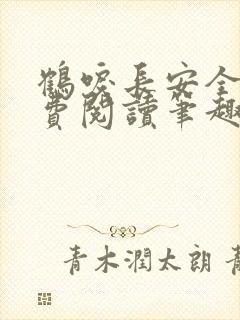 鶴唳長安全
費閱讀筆趣
青木潤太朗